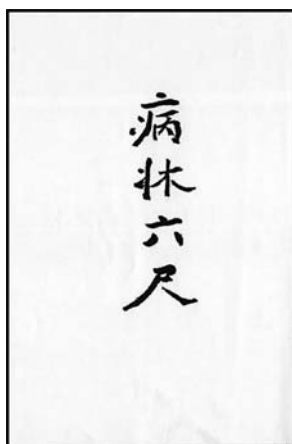 病牀六尺